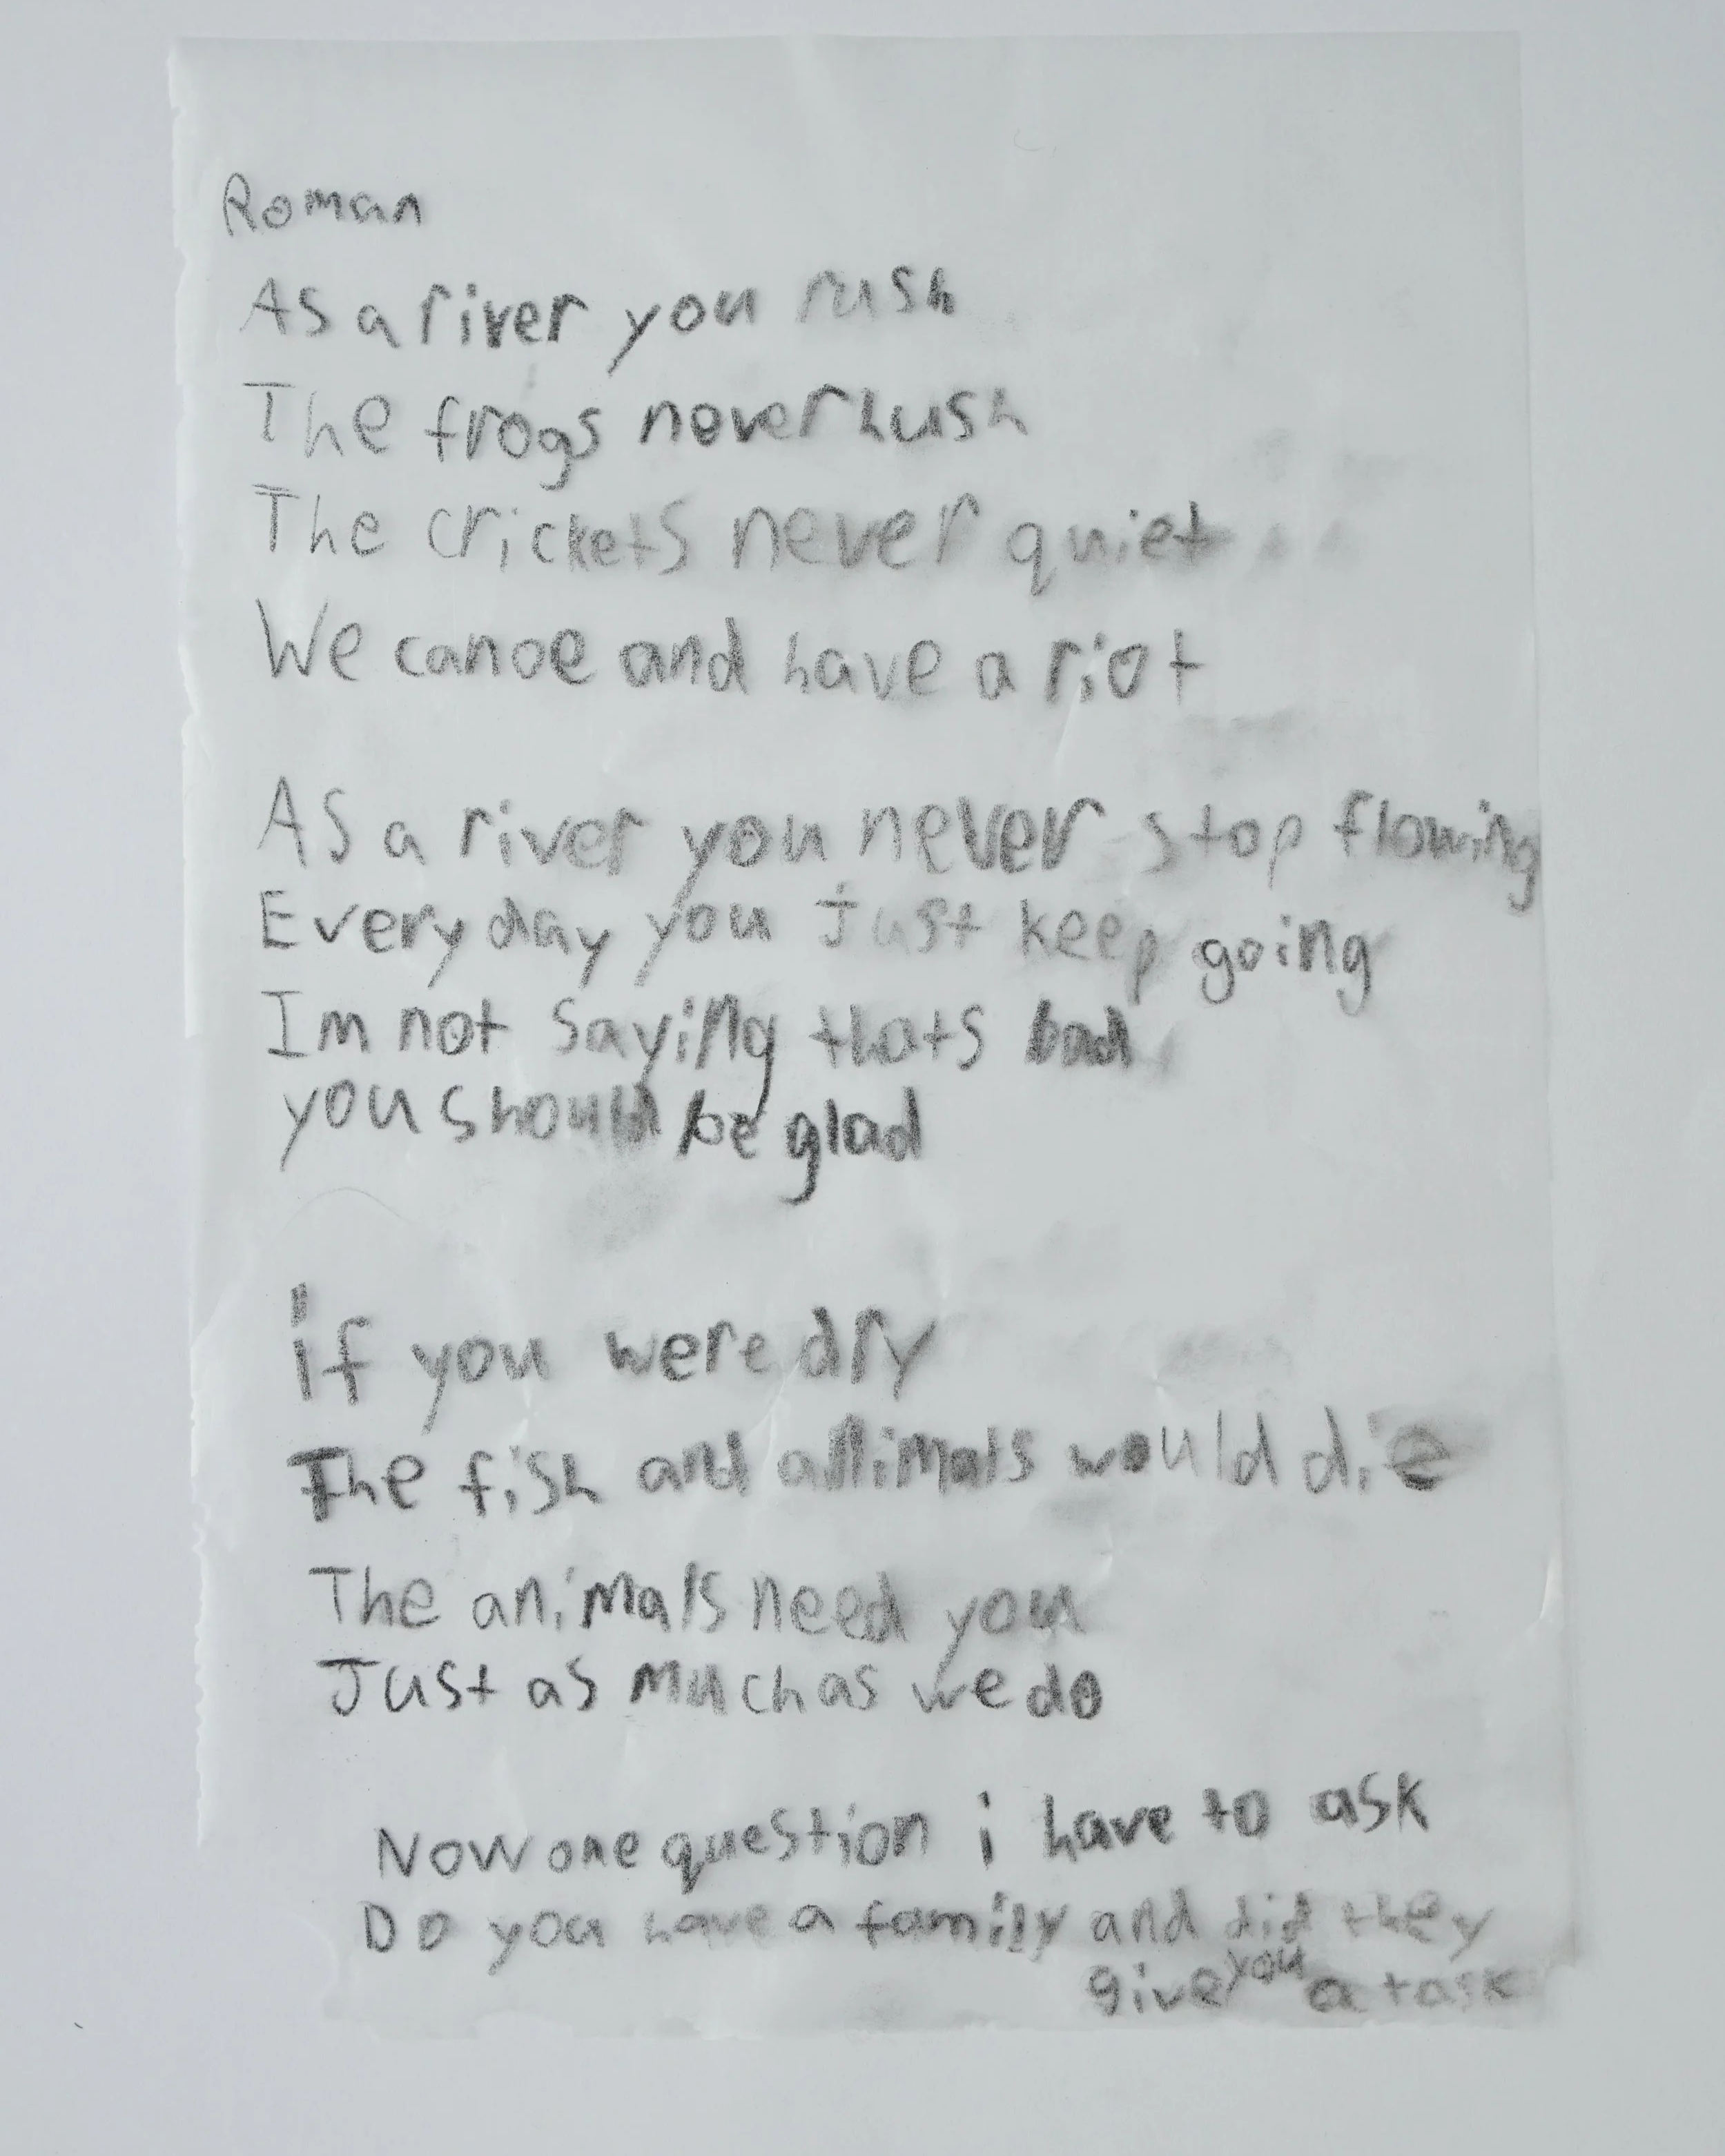 Roman
As a river you rush
The frogs never hush
The crickets never quiet
We canoe and have a riot
As a river you never stop flowing
Every day you just keep going
Im not saying thats bad
you should be glad
if you were dry
The fish and animals would die
The animals need you
Just as much as we do
Now one question i have to ask
Do you have a family and did they
give you a task